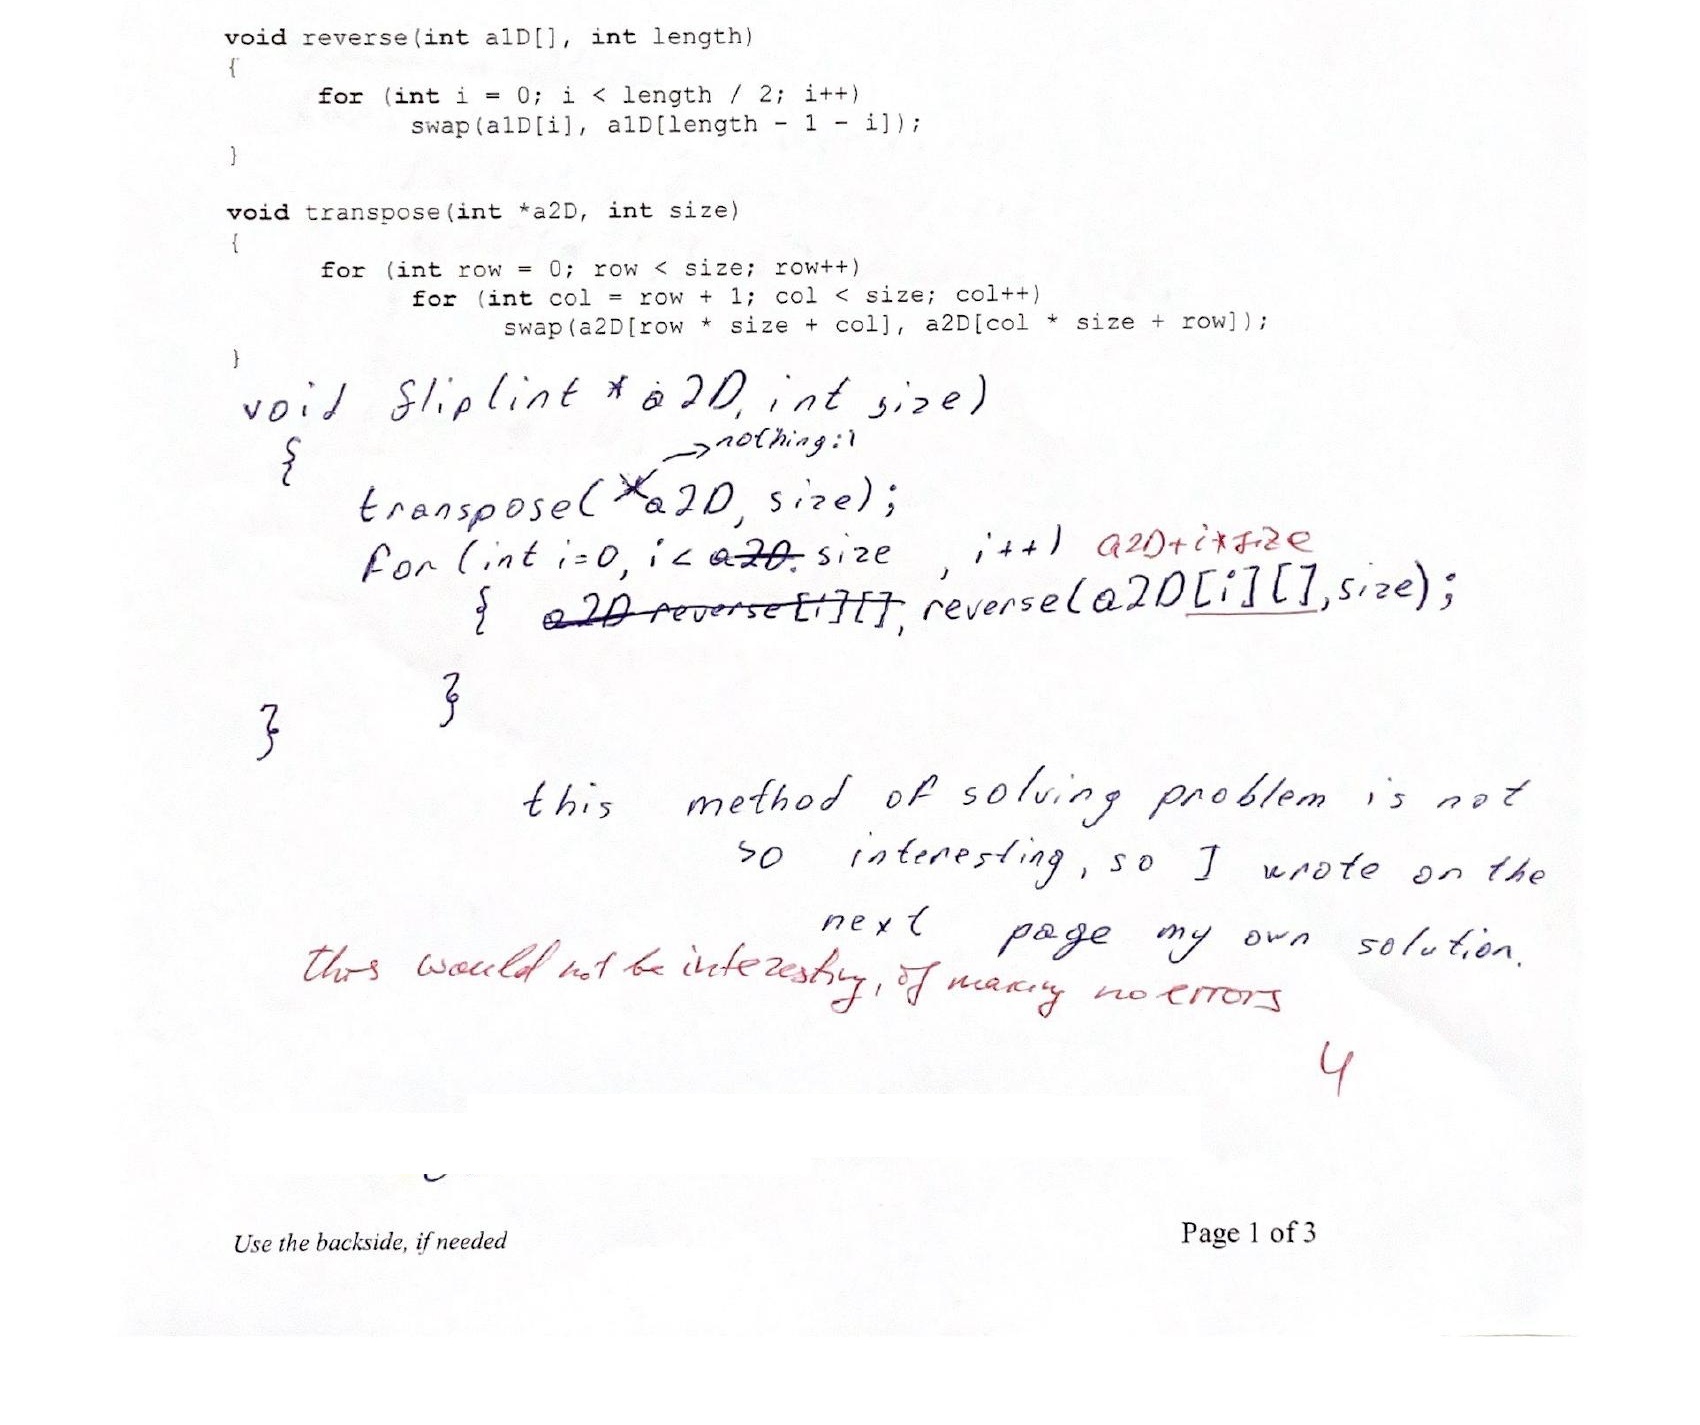 void reverse(int a1D[], int length)
{
for (int i = 0; i < length / 2; i++)
swap(a1D[i], a1D[length - 1 - i]);
}
void transpose(int *a2D, int size)
{
for (int row = 0; row < size; row++)
for (int col = row + 1; col < size; col++)
swap(a2D[row * size + col], a2D[col * size + row]);
}
void flip(int * a2D, int size)
{
→ nothing :)
transpose( a2D, size);
for (int i=0, i < size , i++) a2D+i*size
{ reverse(a2D[i][], size);
}
}
this method of solving problem is not
so interesting, so I wrote on the
next page my own solution.
this would not be interesting, if making no errors
4
Use the backside, if needed
Page 1 of 3